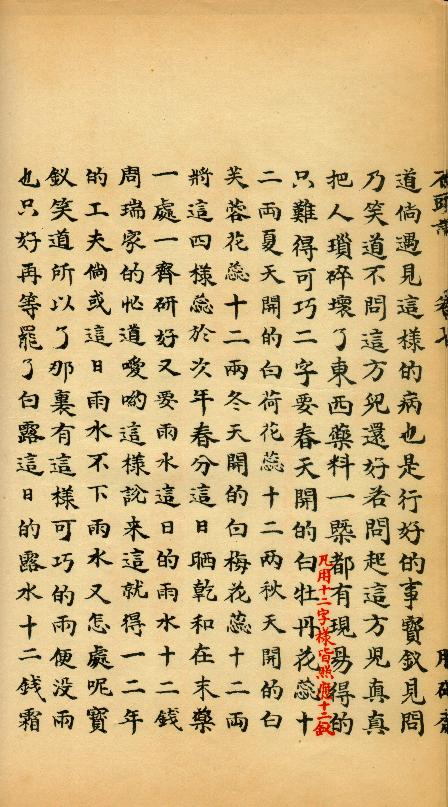 道倘遇見這樣的病也是行好的事寳釵見問
乃笑道不問這方兒還好若問起這方兒真真
把人瑣碎壞了東西藥料一槩都有現昜得的
只難得可巧二字要春天開的白牡丹花蕊十
凡用十二字樣皆照應十二釵
二兩夏天開的白荷花蕊十二兩秋天開的白
芙蓉花蕊十二兩冬天開的白梅花蕊十二兩
將這四樣蕊於次年春分這日晒乾和在末藥
一處一齊研好又要雨水這日的雨水十二錢
周瑞家的忙道嗳喲這樣説来這就得一二年
的工夫倘或這日雨水不下雨水又怎處呢寳
釵笑道所以了那裏有這樣可巧的雨便没雨
也只好再等罷了白露這日的露水十二錢霜